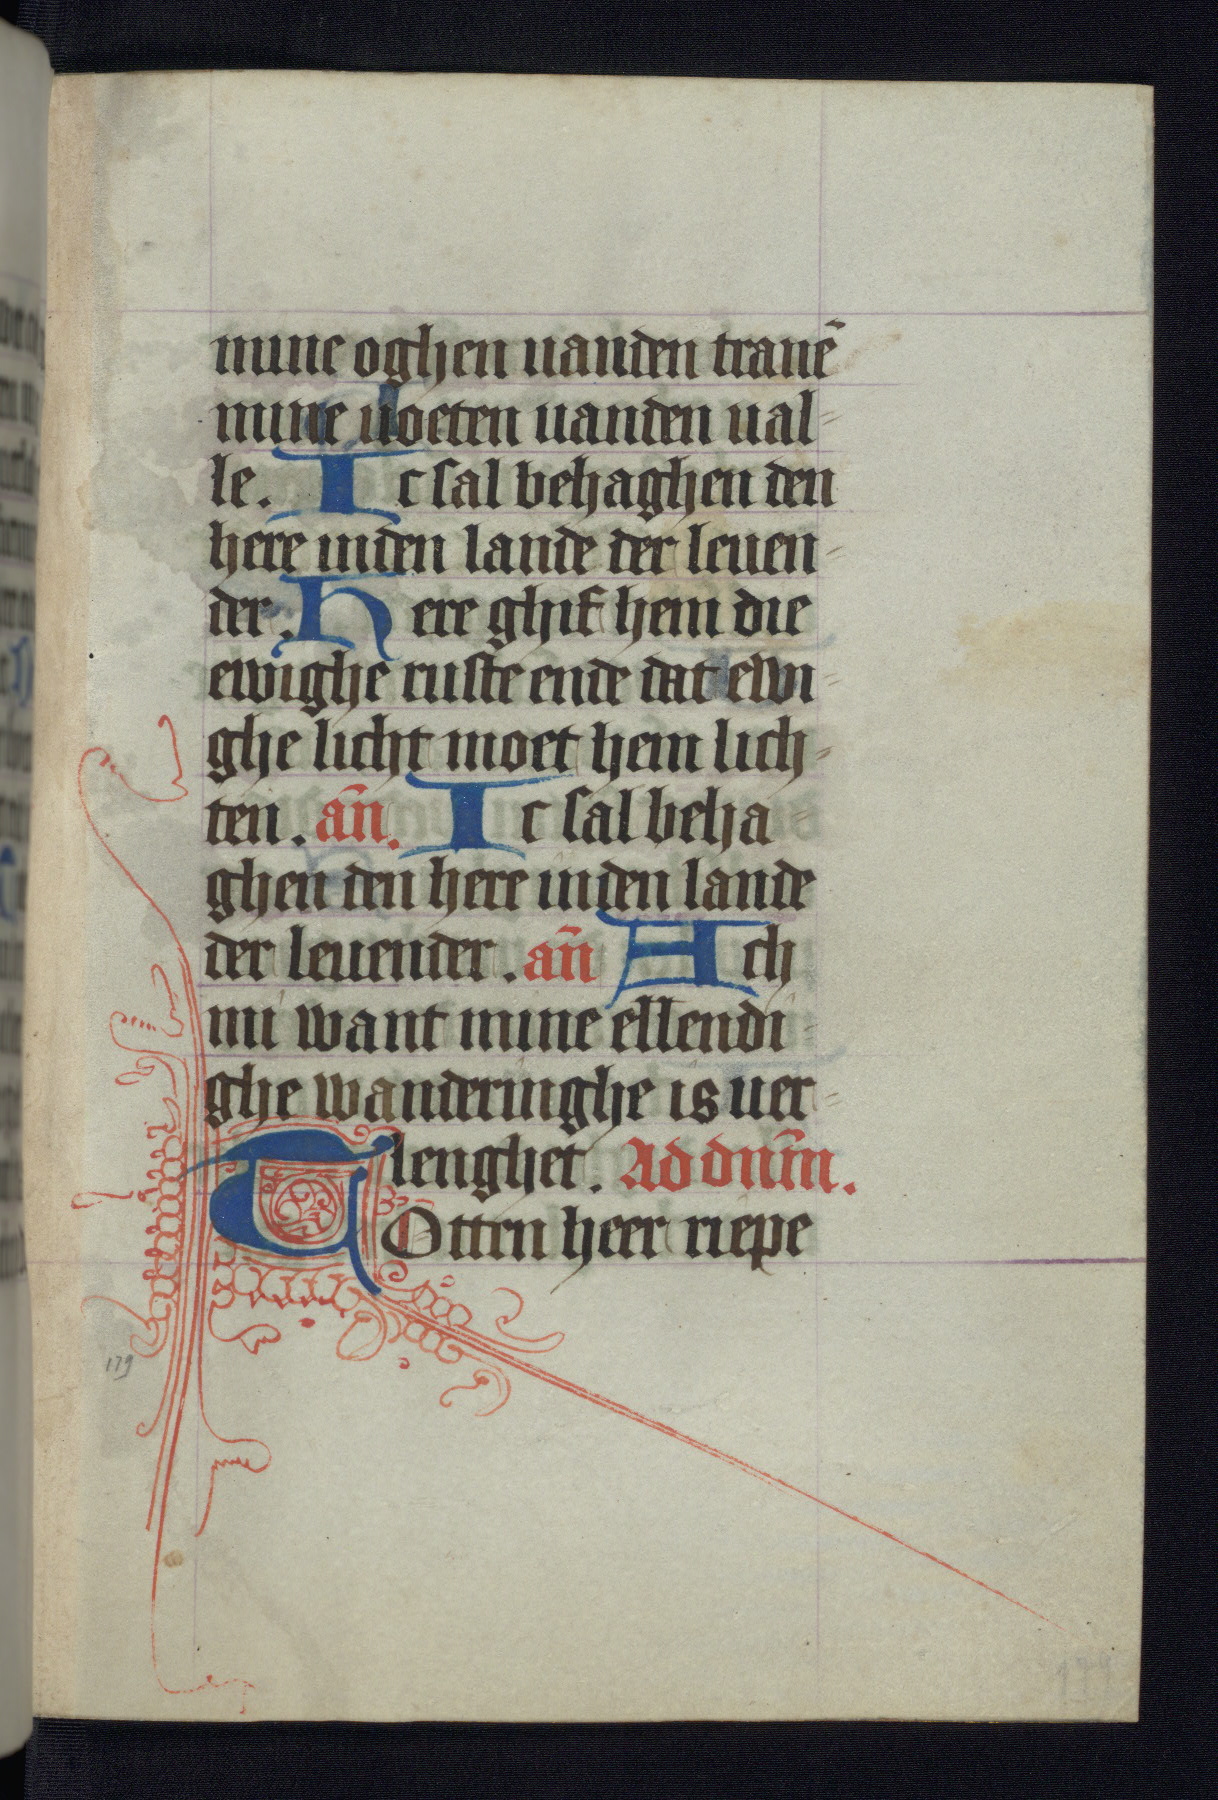 mine oghen uanden tranē
mine uoeten uanden ual-
le. Ic sal behaghen den
here inden lande der leuen-
der. Here ghif hem die
ewighe ruste ende dat ewi-
ghe licht moet hem lich-
ten. añ. Ic sal beha-
ghen den here inden lande
der leuender. añ Ach
mi want mine ellendi-
ghe wanderinghe is uer-
lenghet. Ad dnm̃.
TOtten heer riepe
179
179